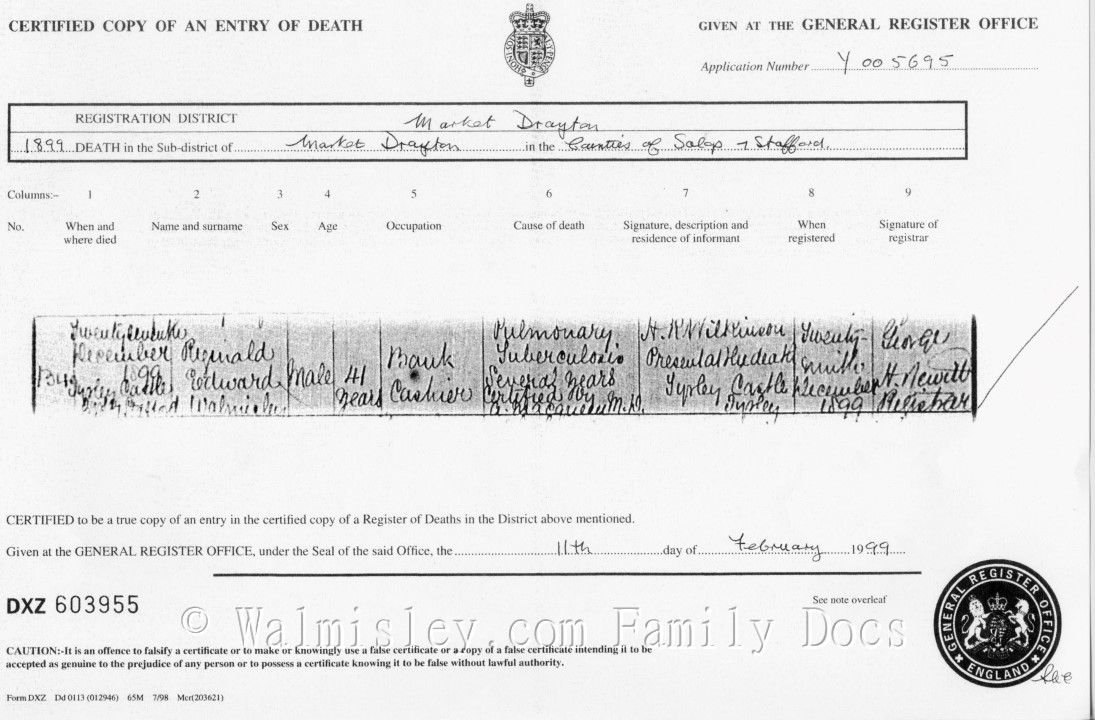 CERTIFIED COPY OF AN ENTRY OF DEATH
GIVEN AT THE GENERAL REGISTER OFFICE
Application Number Y 005695
REGISTRATION DISTRICT Market Drayton
1899 DEATH in the Sub-district of Market Drayton in the Counties of Salop & Stafford.
Columns:- 1 2 3 4 5 6 7 8 9
No. When and where died Name and surname Sex Age Occupation Cause of death Signature, description and residence of informant When registered Signature of registrar
December 1899 Tyrley Castle
Reginald Edward Walmisley
Male
41 years
Bank Cashier
Pulmonary Tuberculosis Several years Certified by M.D.
H. R. Wilkinson Present at the death Tyrley Castle Tyrley
Twenty-ninth December 1899
George H. Newitt Registrar
CERTIFIED to be a true copy of an entry in the certified copy of a Register of Deaths in the District above mentioned.
Given at the GENERAL REGISTER OFFICE, under the Seal of the said Office, the 11th day of February 1999
DXZ 603955
See note overleaf
© Walmisley.com Family Docs
CAUTION:-It is an offence to falsify a certificate or to make or knowingly use a false certificate or a copy of a false certificate intending it to be
accepted as genuine to the prejudice of any person or to possess a certificate knowing it to be false without lawful authority.
Form DXZ Dd 0113 (012946) 65M 7/98 Mcr(203621)
GENERAL REGISTER OFFICE ENGLAND